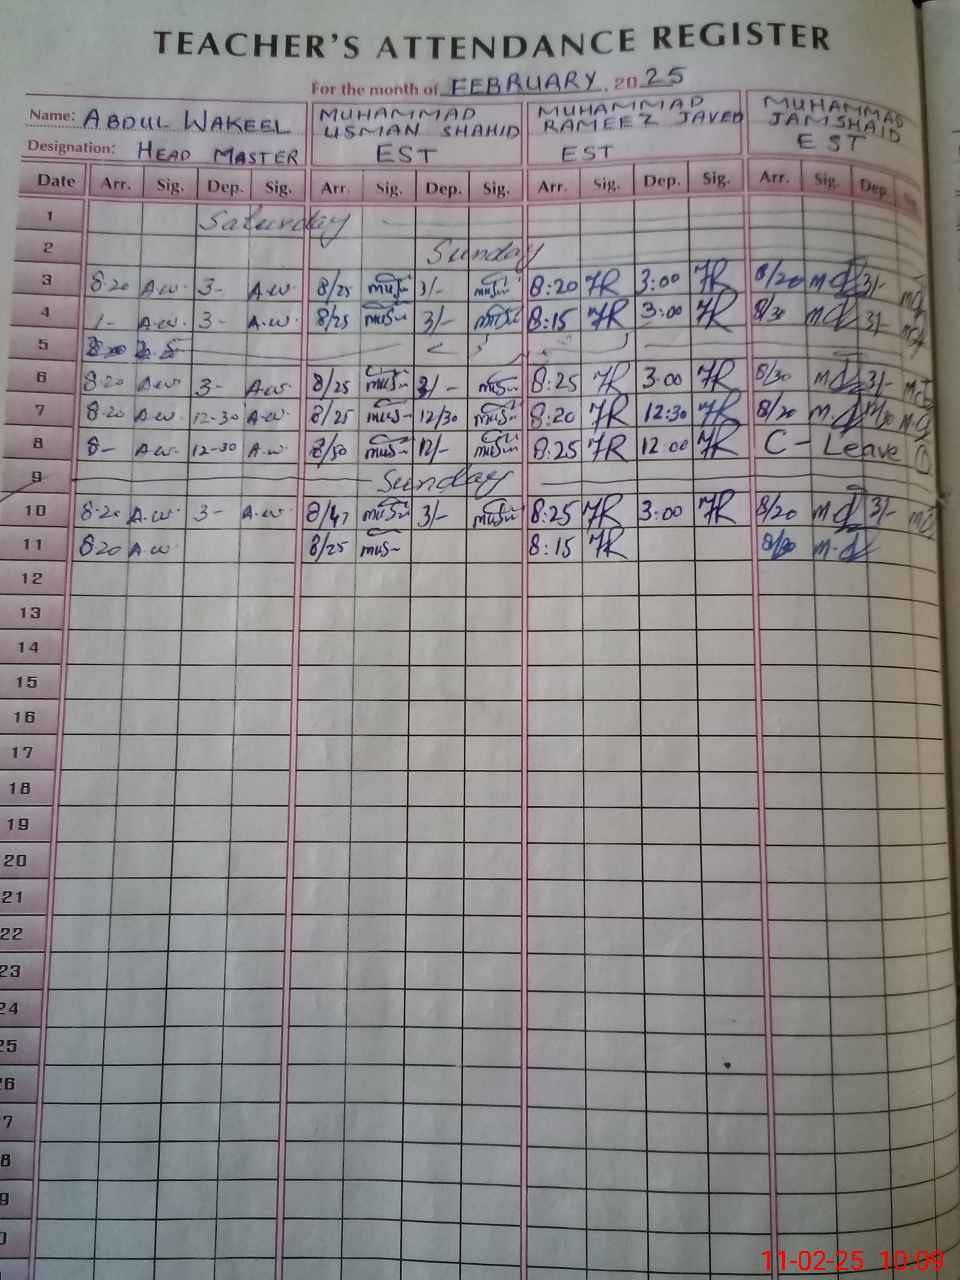 TEACHER'S ATTENDANCE REGISTER
For the month of FEBRUARY, 2025
Name: ABDUL WAKEEL MUHAMMAD USMAN SHAHID MUHAMMAD RAMEEZ JAVED MUHAMMAD JAMSHAID
Designation: HEAD MASTER EST EST EST
Date Arr. Sig. Dep. Sig. Arr. Sig. Dep. Sig. Arr. Sig. Dep. Sig. Arr. Sig. Dep.
1 Saturday
2 Sunday
3 8-20 A.W. 3- A.W. 8/25 3/- 8:20 7R 3:00 7R 8/20 3/-
4 A.W. 3- A.W. 8/25 3/- 8:15 7R 3:00 7R 8/30 3/-
5
6 8-20 A.W. 3- A.W. 8/25 8:25 7R 3:00 7R 8/30 3/-
7 8-20 A.W. 12-30 A.W. 8/25 12/30 8:20 7R 12:30 7R 8/20
8 8- A.W. 12-30 A.W. 12/- 8:25 7R 12:00 7R C - Leave 1
9 Sunday
10 8-20 A.W. 3- A.W. 3/- 8:25 7R 3:00 7R 8/20 3/-
11 8-20 A.W. 8/25 8:15 7R
12
13
14
15
16
17
18
19
20
21
22
23
24
25
26
7
8
9
0
11-02-25 10:09